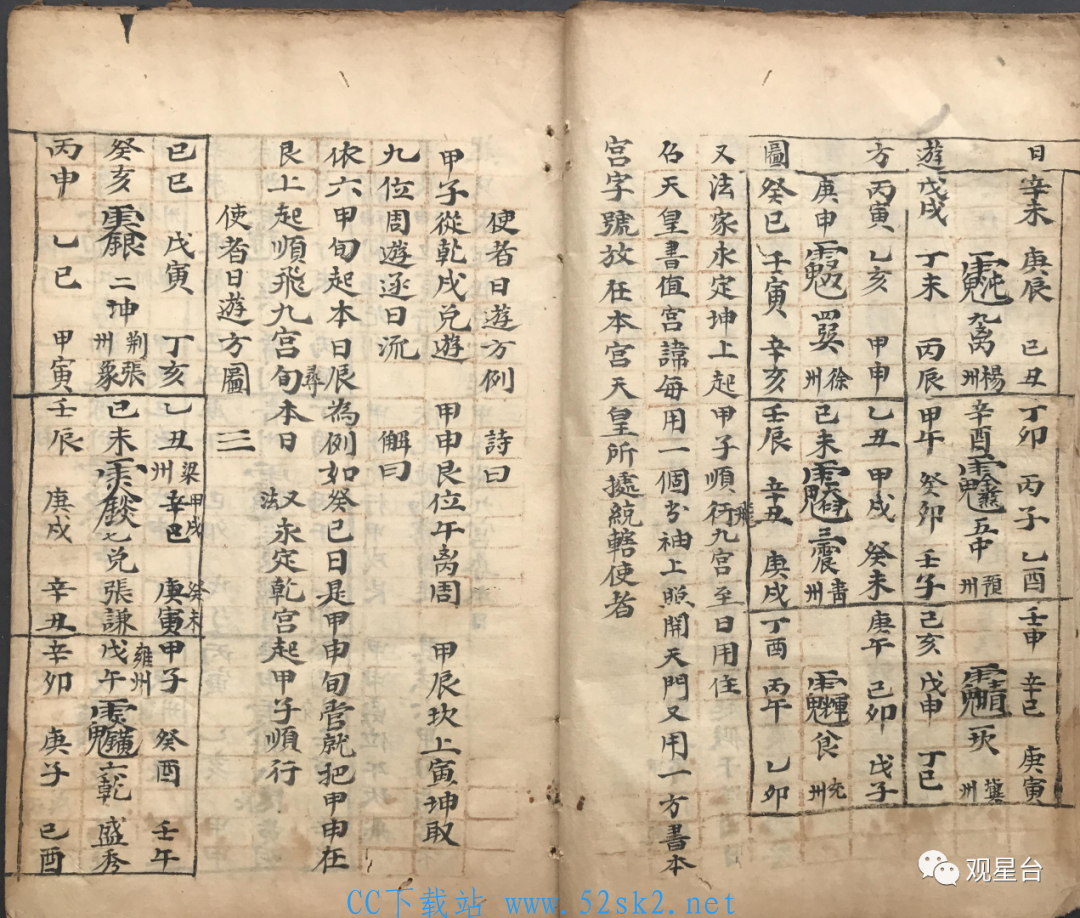 日 辛未 庚辰 己丑 丁卯 丙子 乙酉 壬申 辛巳 庚寅
九离 楊州 辛酉 五中 預州 坎 冀州
遊 戊戌 丁未 丙辰 甲午 癸卯 壬子 己亥 戊申 丁巳
方 丙寅 乙亥 甲申 乙丑 甲戌 癸未 庚午 己卯 戊子
庚申 四巽 徐州 己未 三震 青州 食 兖州
圖 癸巳 壬寅 辛亥 壬辰 辛丑 庚戌 丁酉 丙午 乙卯
又法家永定坤上起甲子順飛行九宮至日用住
召天皇書值宮諱每用一個於袖上照開天門又用一方書本
宮字號放在本宮天皇所據統轄使者
使者日遊方例 詩曰
甲子從乾戌兑遊 甲申艮位午离周 甲辰坎上寅坤取
九位周遊逐日流 解曰
依六甲旬起本日辰為例如癸巳日是甲申旬管就把甲申在
艮上起順飛九宮旬尋本日 又法永定乾宮起甲子順行
使者日遊方圖 三
己巳 戊寅 丁亥 乙丑 梁州 甲戌 辛巳 癸未 庚寅 甲子 癸酉 壬午
癸亥 二坤 荆州 張象 己未 七兑 張謙 戊午 雍州 六乾 盛秀
丙申 乙巳 甲寅 壬辰 庚戌 辛丑 辛卯 庚子 己酉
观星台
CC下载站 www.52sk2.net